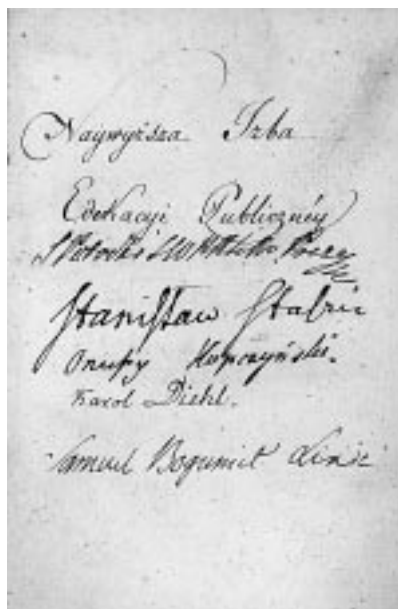 Naywyższa Izba
Edukacyi Publiczney
Potocki
Stanisław Staszic
Onufry Kopczyński.
Karol Diehl.
Samuel Bogumił Linde